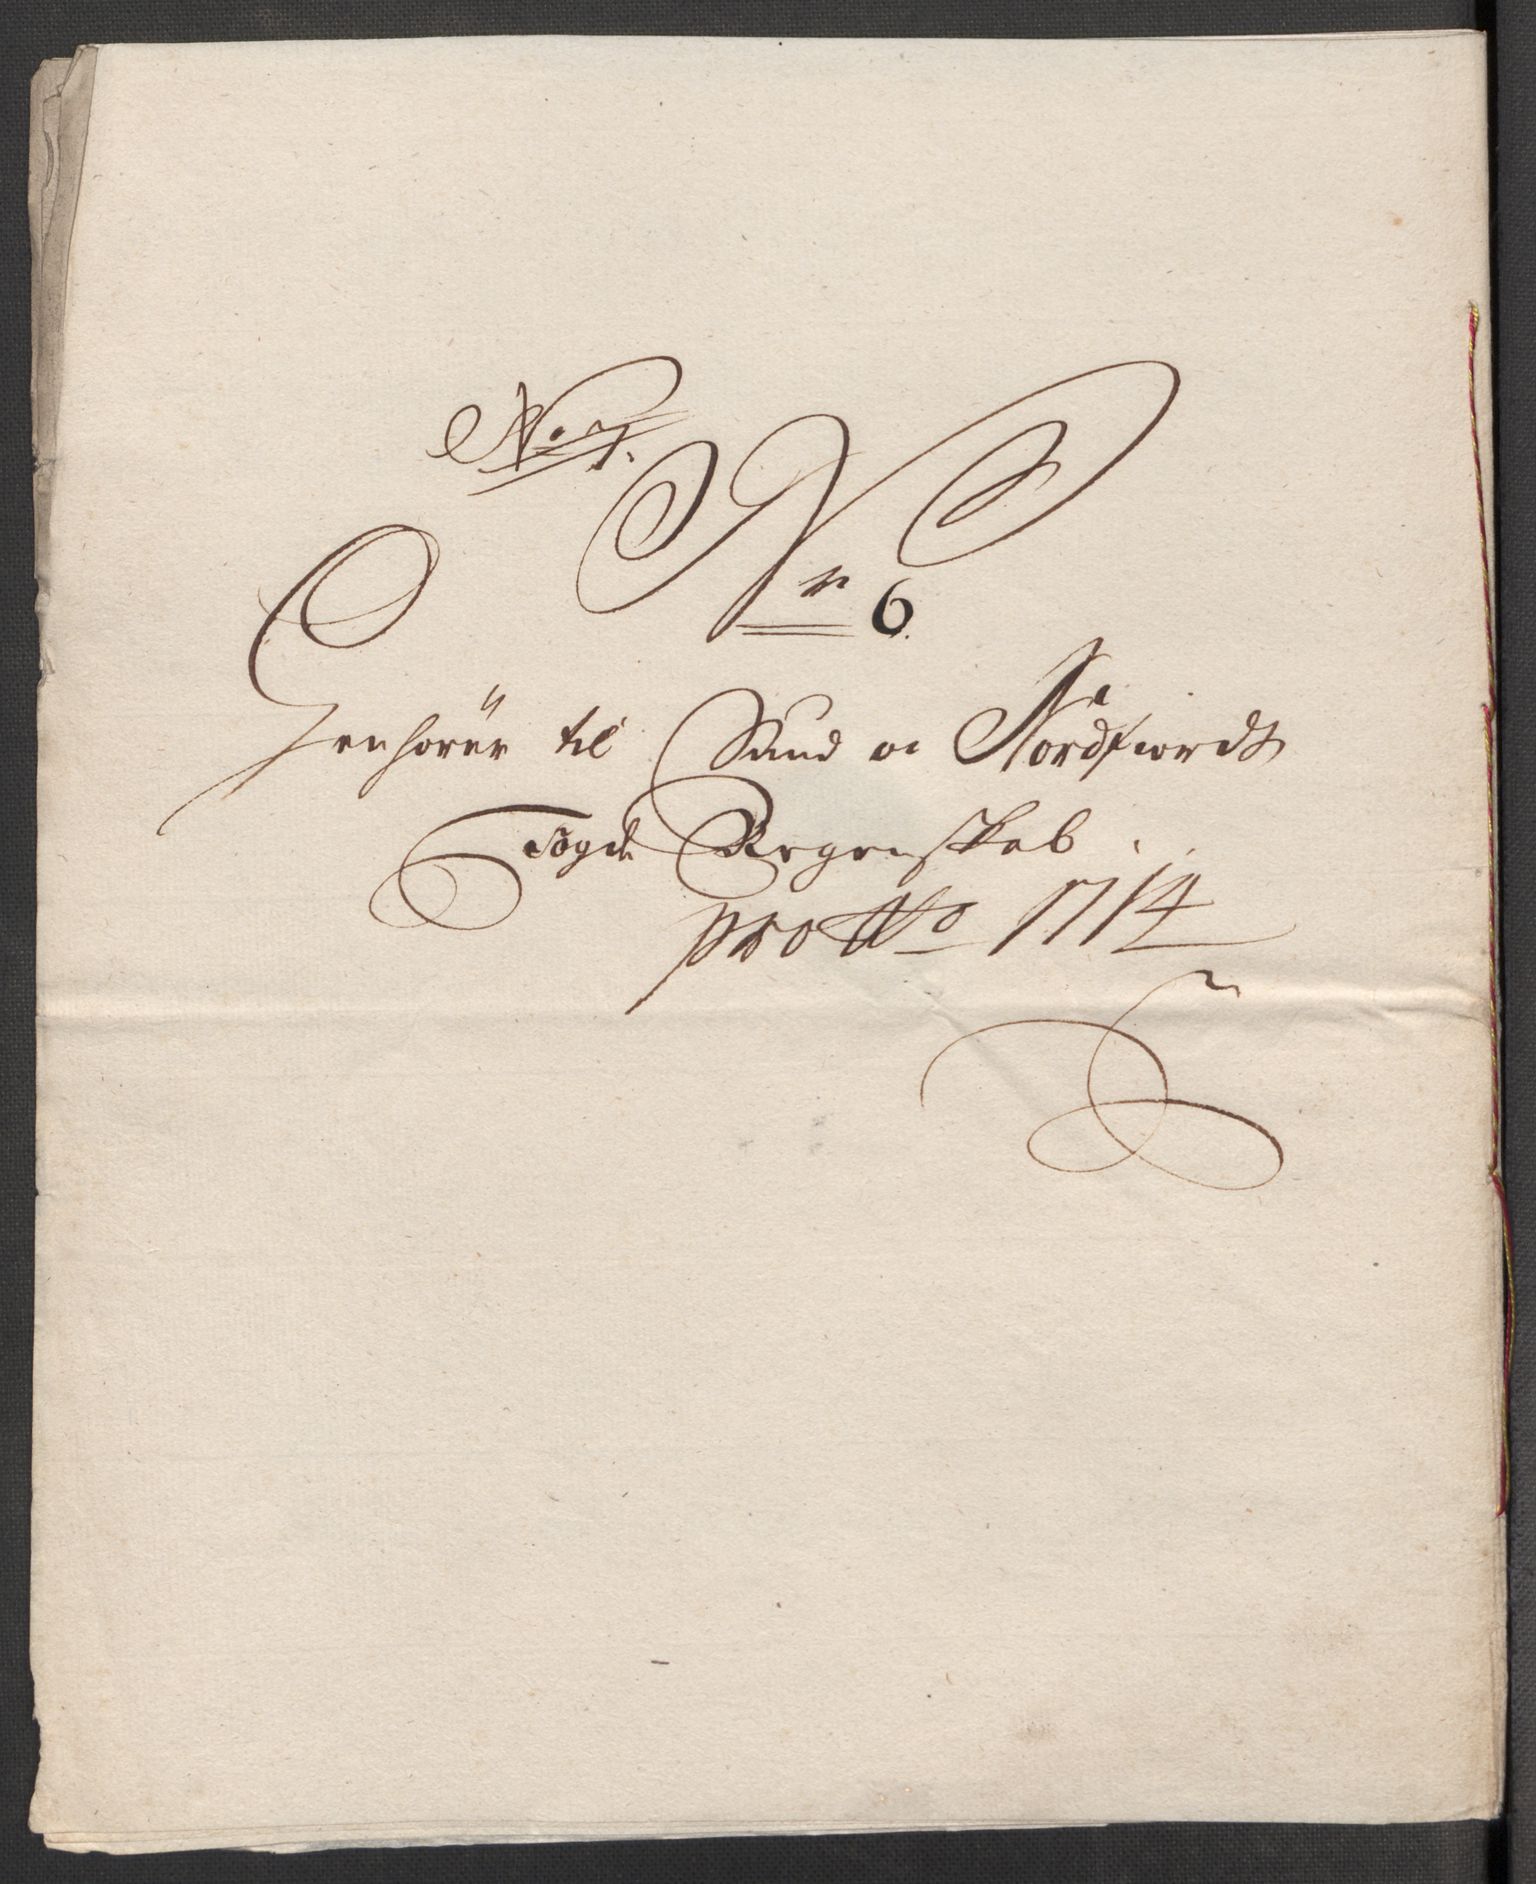 No 7.
Nr 6.
Henhörer til Sund og Nordfiords
Fogderie Regenskab.
pro Ao 1714